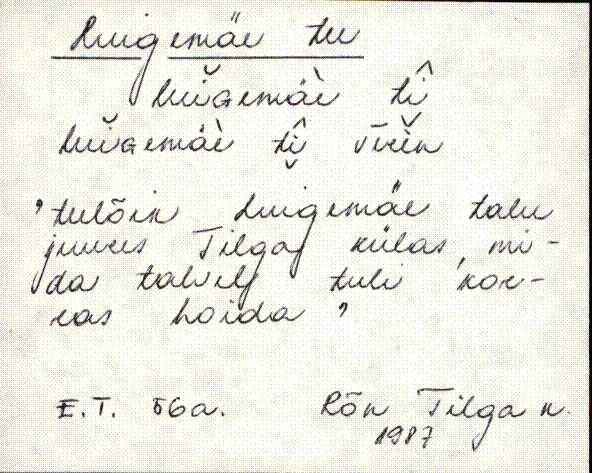 Luigemäe tee
luiGemäè tî
luiGemäè tî vīrèn
"teelõik Luigemäe talu
juures Tilga külas, mi-
da talvel tuli kor-
ras hoida"
E.T. 56a. Rõn Tilga k.
1987